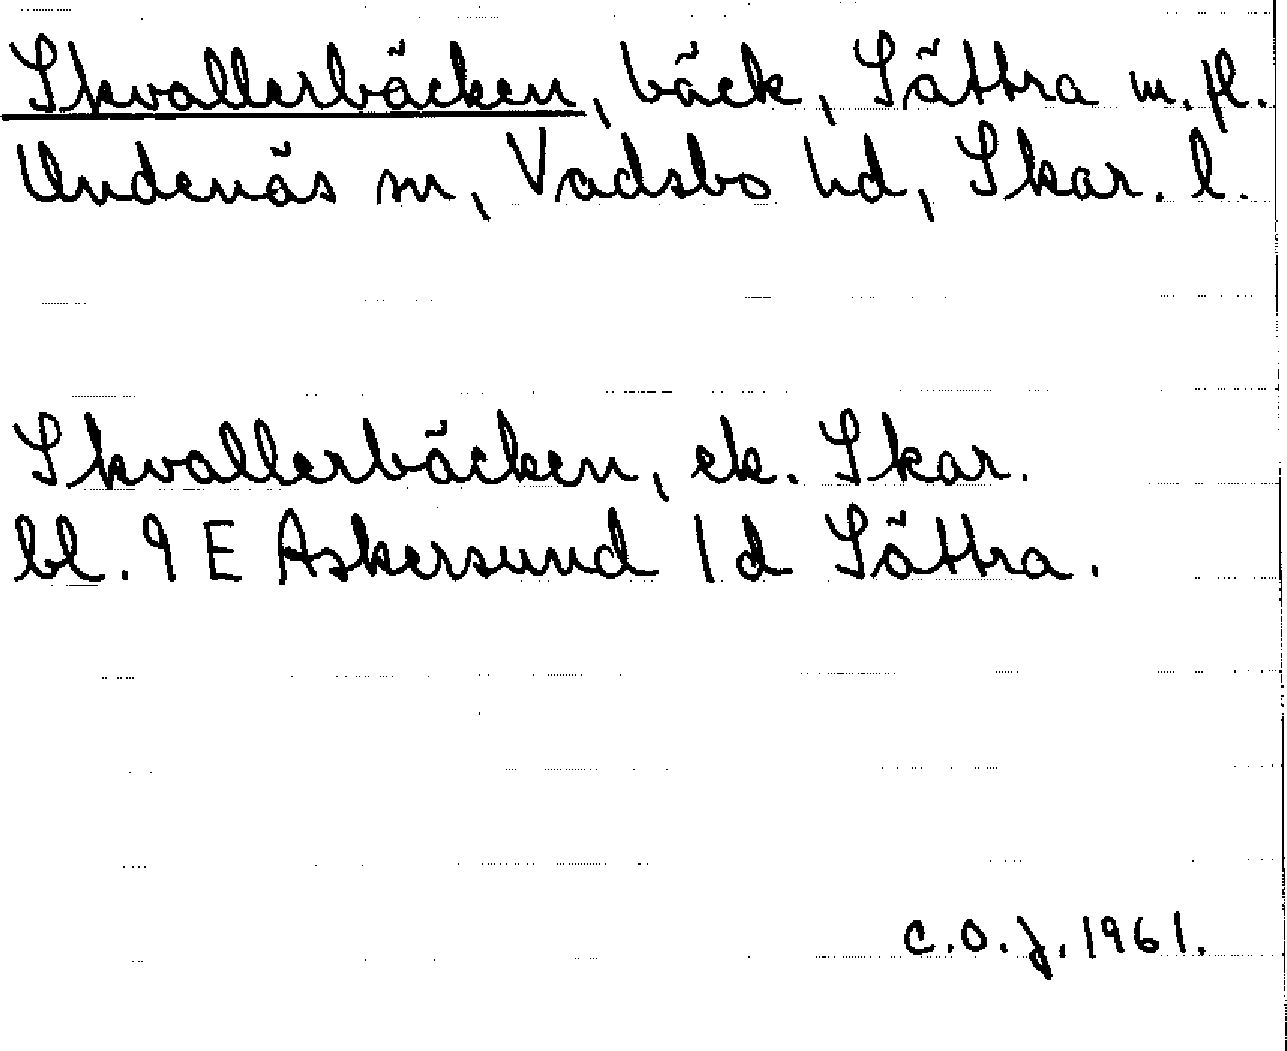 Skvallerbäcken, bäck, Sättra m. fl.
Undenäs sn, Vadsbo hd, Skar. l.
Skvallerbäcken, ek. Skar.
bl. 9 E Askersund 1 d Sättra.
C.O.J. 1961.